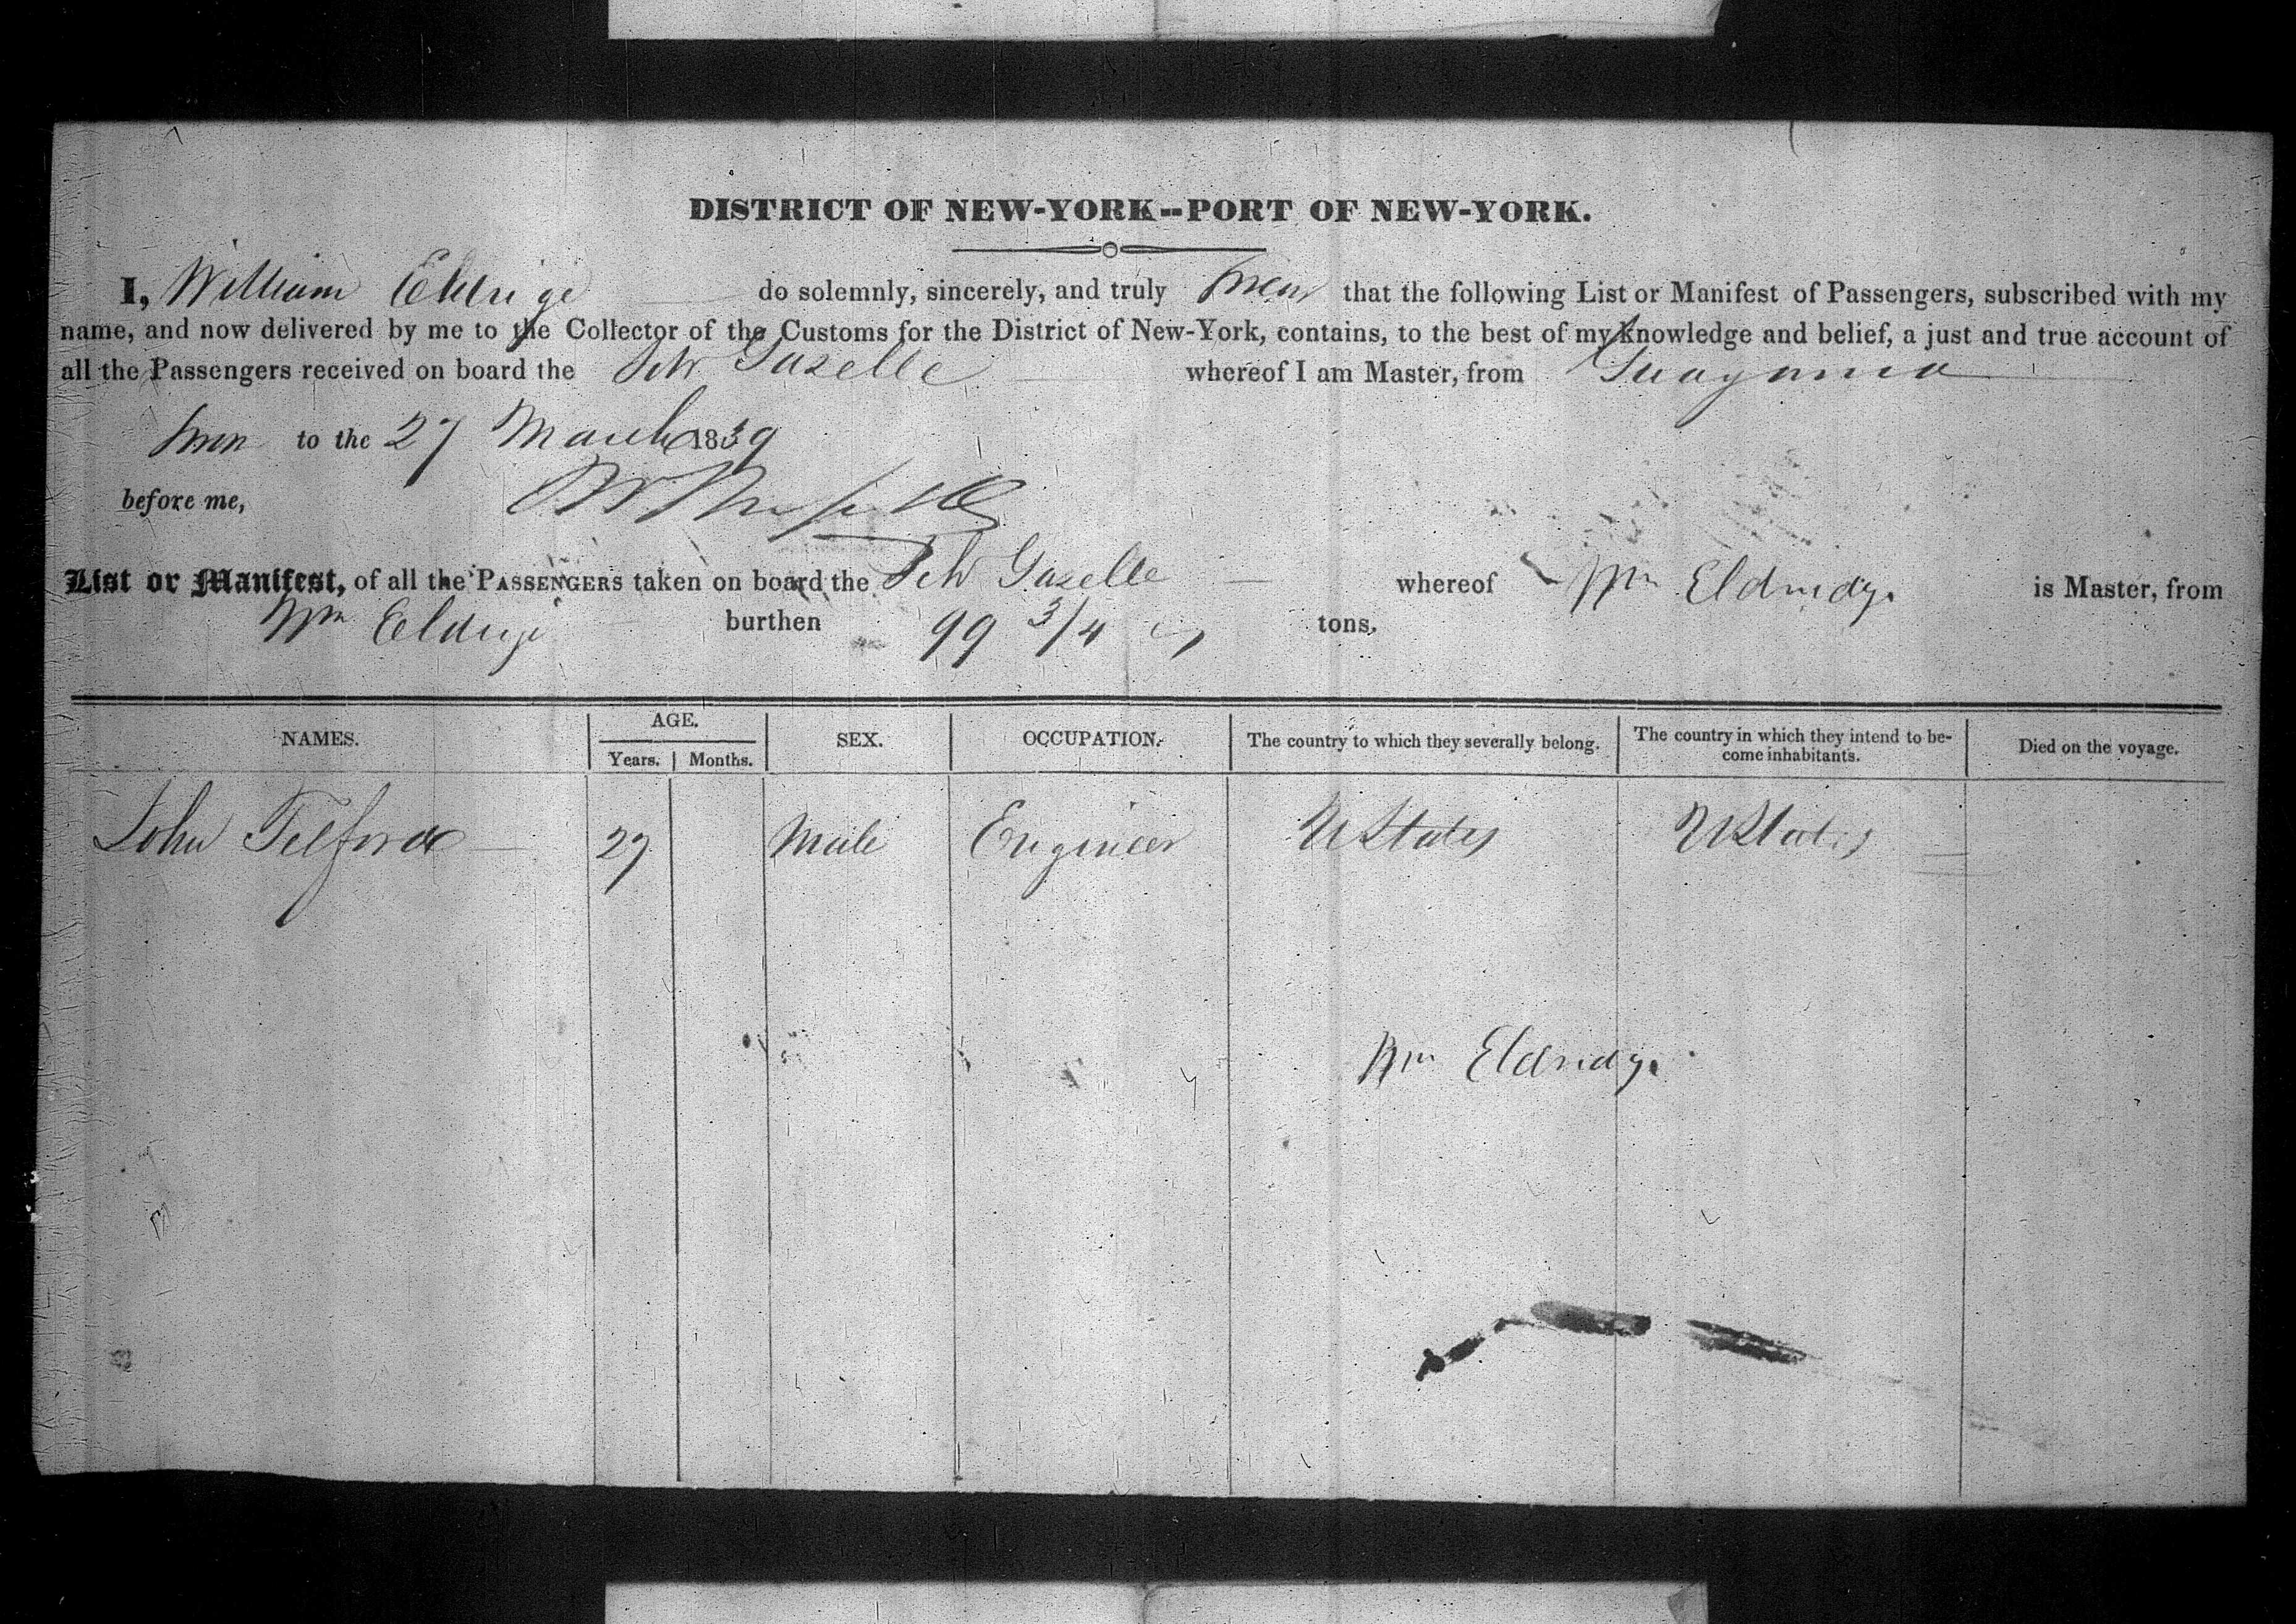 DISTRICT OF NEW-YORK--PORT OF NEW-YORK.
I, William Eldrige do solemnly, sincerely, and truly swear that the following List or Manifest of Passengers, subscribed with my
name, and now delivered by me to the Collector of the Customs for the District of New-York, contains, to the best of my knowledge and belief, a just and true account of
all the Passengers received on board the Schr Gazelle whereof I am Master, from Guayama
Sworn to the 27 March 1839
before me,
List or Manifest, of all the PASSENGERS taken on board the Schr Gazelle whereof Wm Eldridge is Master, from
Wm Eldrige burthen 99 3/4 tons.
NAMES. AGE. SEX. OCCUPATION. The country to which they severally belong. The country in which they intend to be-
come inhabitants. Died on the voyage.
Years. Months.
John Telford 27 Male Engineer U States U States
Wm Eldridge